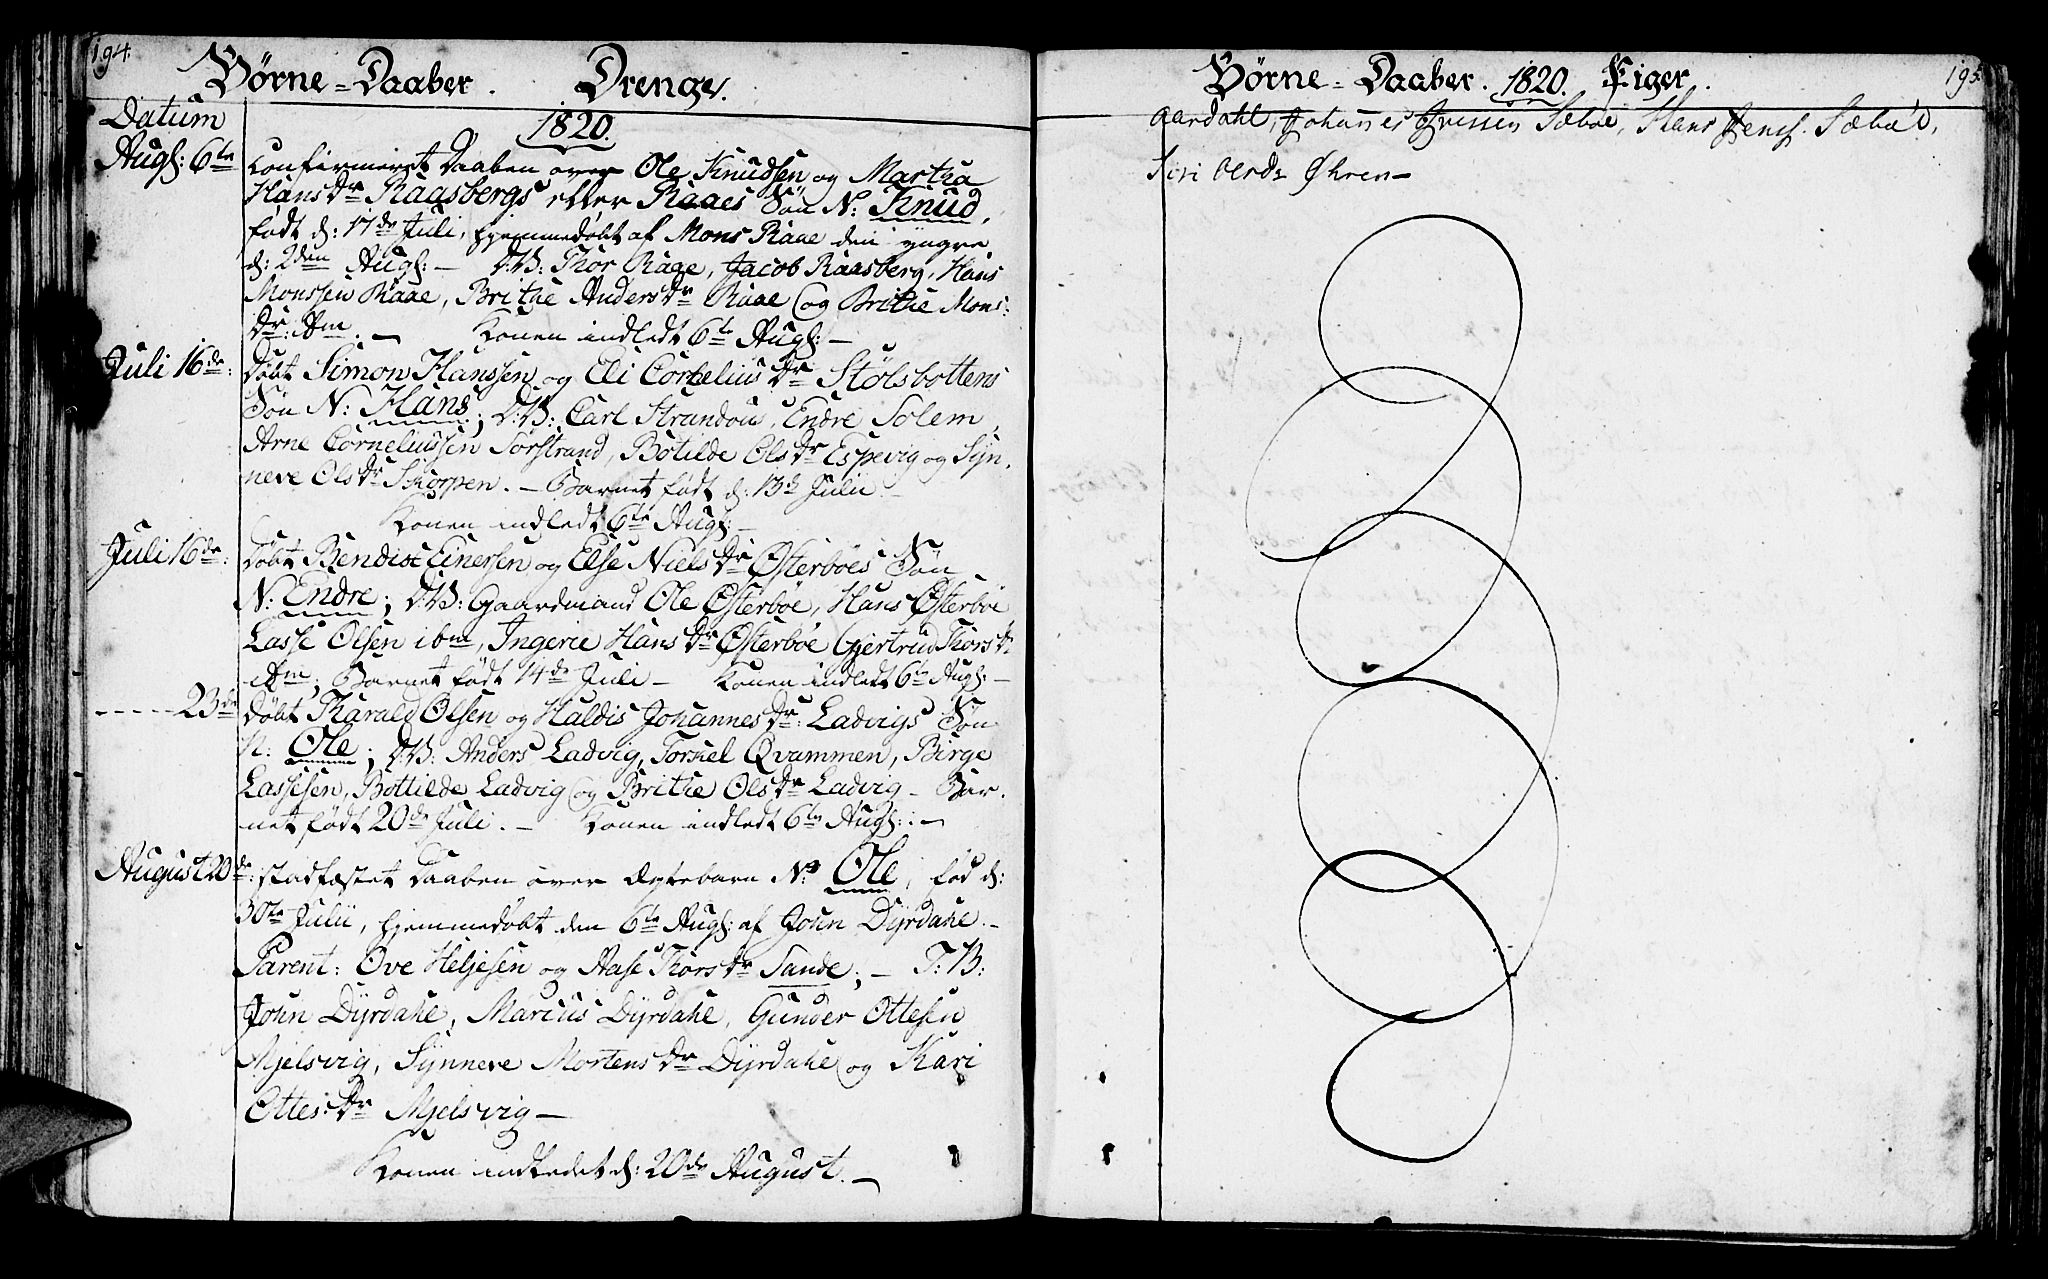 194.
Börne-Daaber. Drenge.
Datum
1820.
Augs: 6te Confirmeret Daaben over Ole Knudsen og Martha
Hansdr Raasbergs eller Raaes Sön N: Knud,
født d: 17de Juli, hjemmedöbt af Mons Raae den yngre
d: 2den Augs: — D:V: Thor Raae, Jacob Raasberg, Hans
Monssen Raae, Brithe Andersdr Raae og Brithe Mons:
dr: ibm. — Konen indledt 6te Augs: —
Juli 16de: Döbt Simon Hanssen og Eli Corneliusdr Stölsbottens
Sön N: Hans; D:V: Carl Strandou, Endre Solem,
Arne Corneliussen Sörstrand, Botilde Olsdr Espevig og Syn,
neve Olsdr Skorpen. — Barnet født d: 13d Julii —
Konen indledt 6te Augs: —
Juli 16de: Döbt Bendix Einersen og Else Nielsdr Österböes Sön
N: Endre; D:V: Gaardmand Ole Österböe, Hans Österböe
Lasse Olsen ibm, Ingerie Hansdr Österböe Gjertrud Thorsdr
ibm; Barnet født 14de Juli — Konen indledt 6te Augs: —
----- 23de Döbt Tharald Olsen og Haldis Johannesdr: Ladvigs Sön
N: Ole; D:V: Anders Ladvig, Torkel Qvammen, Birge
Lassesen, Bottilde Ladvig og Brithe Olsdr Ladvig — Bar,
net født 20de Juli. — Konen indledt 6te Augs: —
August 20de: stadfæstet Daaben over Ægtebarn N: Ole, fød d:
30te Julii, hjemmedöbt den 6te Augs: af John Dyrdahl. —
Parent: Ove Heljesen og Aase Thorsdr Sande; — T:V:
John Dyrdahl, Marcus Dyrdahl, Gunder Ottesen
Mjelsvig, Synneve Mortensdr Dyrdahl og Kari
Ottes:dr Mjelsvig —
Konen indledet d: 20de August. —
195.
Börne-Daaber. 1820. Piger.
aardahl, Johannes Iverssen Sæböe, Hans Jens: Sæbö,
Siri Öhren —